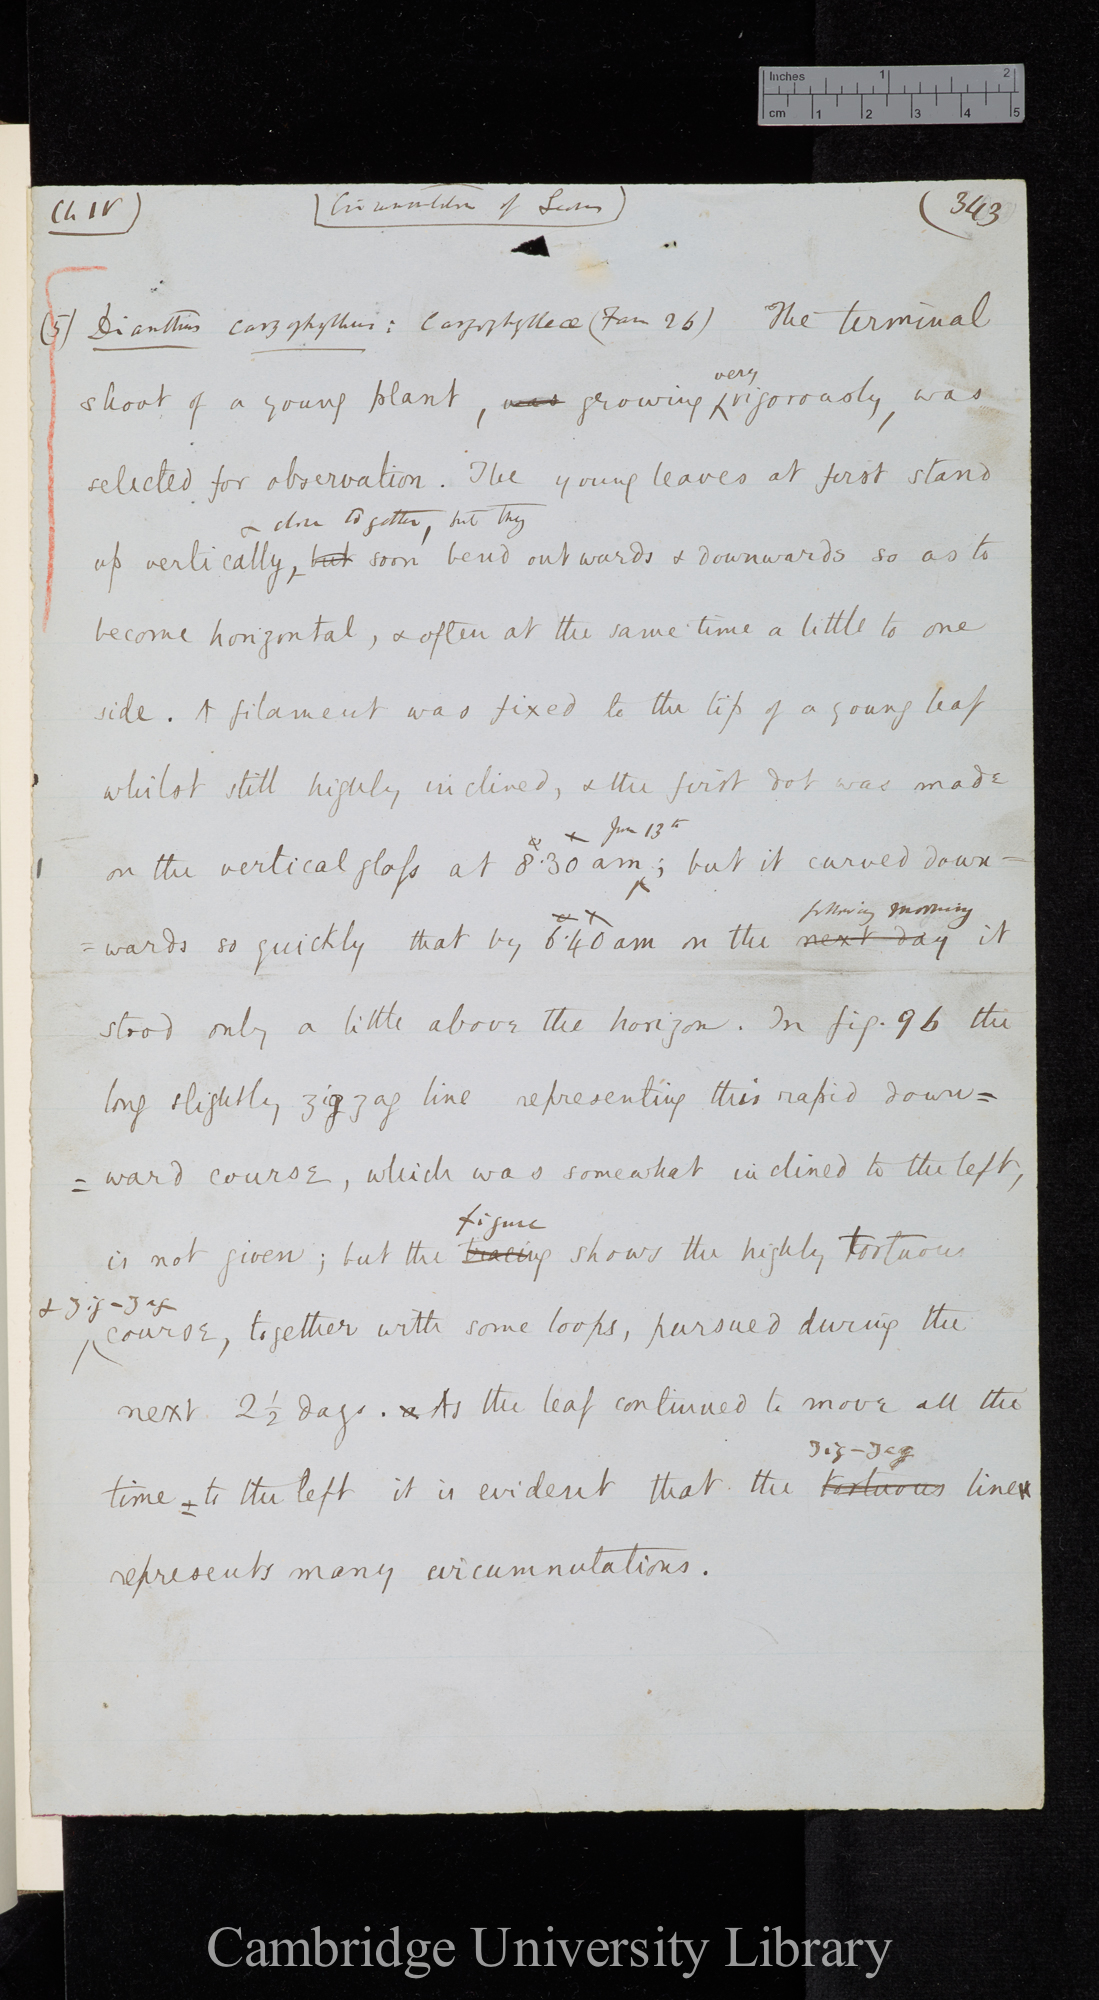 Inches 1 2
cm 1 2 3 4 5
Ch IV) (Circumnutation of Leaves) (343
(5) Dianthus caryophyllus: Caryophylleæ (Fam 26) The terminal
very
shoot of a young plant, was growing vigorously, was
selected for observation. The young leaves at first stand
& close together, but they
up vertically, but soon bend outwards & downwards so as to
become horizontal, & often at the same time a little to one
side. A filament was fixed to the tip of a young leaf
whilst still highly inclined, & the first dot was made
June 13th
on the vertical glass at 8.30 am; but it curved down=
following morning
=wards so quickly that by 6.40 am on the next day it
stood only a little above the horizon. In fig. 96 the
long slightly zigzag line representing this rapid down=
=ward course, which was somewhat inclined to the left,
figure
is not given; but the tracing shows the highly tortuous
& zig-zag
course, together with some loops, pursued during the
next 2½ days. & As the leaf continued to move all the
zig-zag
time to the left it is evident that the tortuous line
represents many circumnutations.
Cambridge University Library